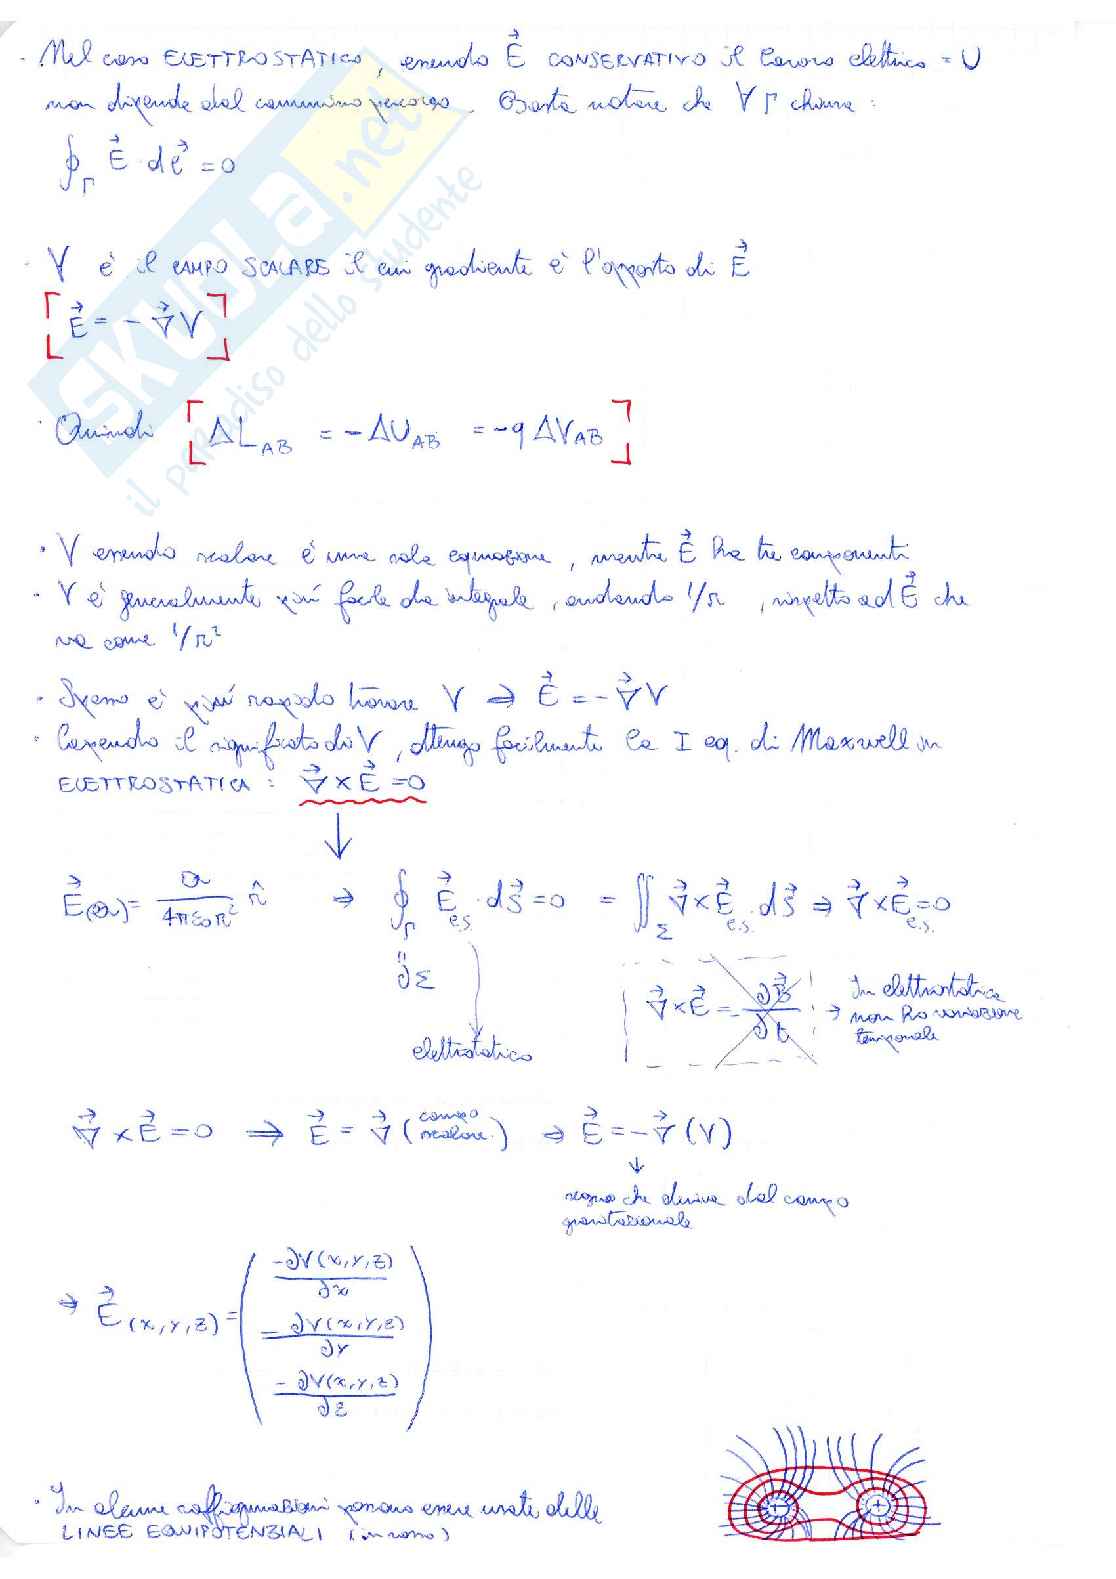 · Nel caso ELETTROSTATICO, essendo E⃗ CONSERVATIVO il lavoro elettrico = U
non dipende dal cammino percorso. Basta notare che ∀ Γ chiusa :
∮_Γ E⃗ · dℓ⃗ = 0
· V è il CAMPO SCALARE il cui gradiente è l'opposto di E⃗
[ E⃗ = - ∇⃗V ]
· Quindi [ ΔL_AB = -ΔU_AB = -q ΔV_AB ]
· V essendo scalare è una sola equazione, mentre E⃗ ha tre componenti
· V è generalmente più facile da integrale, andando 1/r, rispetto ad E⃗ che
va come 1/r²
· Spesso è più rapido trovare V ⇒ E⃗ = -∇⃗V
· Sapendo il significato di V, ottengo facilmente la I eq. di Maxwell in
ELETTROSTATICA : ∇⃗ × E⃗ = 0
↓
E⃗(Q) = Q / 4πε₀r² r̂ ⇒ ∮_Γ E⃗_e.s. · dS⃗ = 0 = ∬_Σ ∇⃗ × E⃗_e.s. · dS⃗ ⇒ ∇⃗ × E⃗_e.s. = 0
"
∂Σ
elettrostatico
∇⃗ × E⃗ = - ∂B⃗/∂t → In elettrostatica
non ho variazione
temporale
∇⃗ × E⃗ = 0 ⇒ E⃗ = ∇⃗ (campo scalare) ⇒ E⃗ = -∇⃗ (V)
↓
segno che deriva dal campo
gravitazionale
⇒ E⃗(x,y,z) = ( -∂V(x,y,z)/∂x
-∂V(x,y,z)/∂y
-∂V(x,y,z)/∂z )
· In alcune raffigurazioni possono essere usate delle
LINEE EQUIPOTENZIALI (in rosso)
+ +
SKUOLA.net
il paradiso dello studente